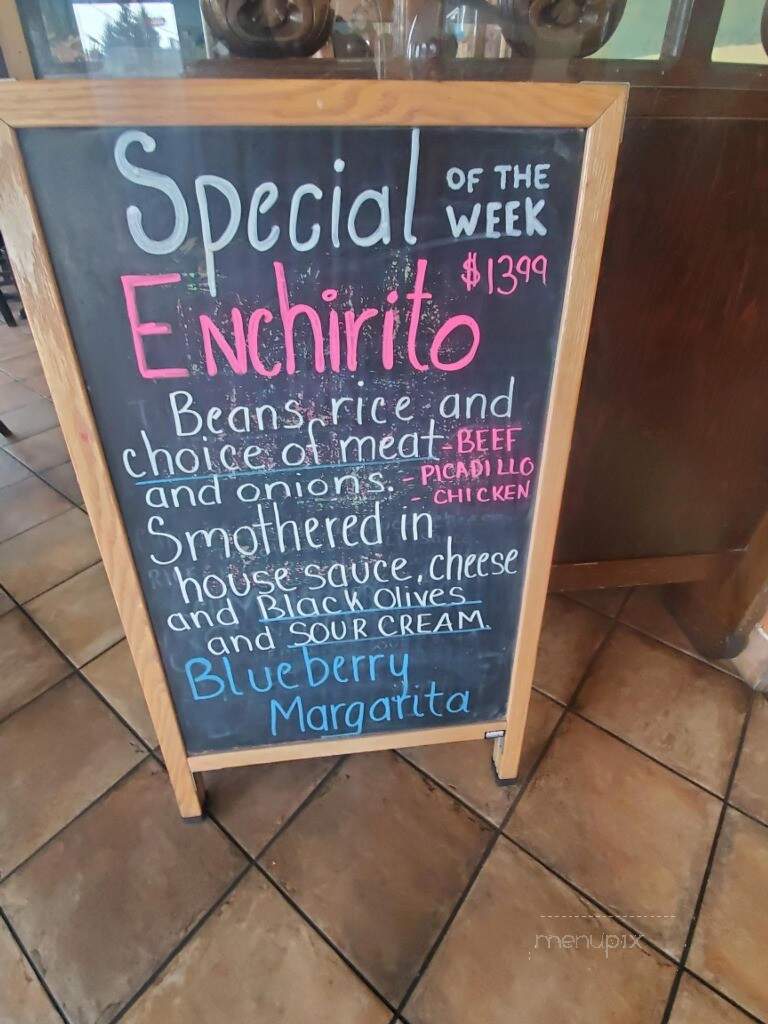 Special OF THE WEEK
$13.99
Enchirito
Beans, rice and
choice of meat - BEEF
and onions. - PICADILLO
- CHICKEN
Smothered in
house sauce, cheese
and Black Olives
and SOUR CREAM.
Blueberry
Margarita
menupix